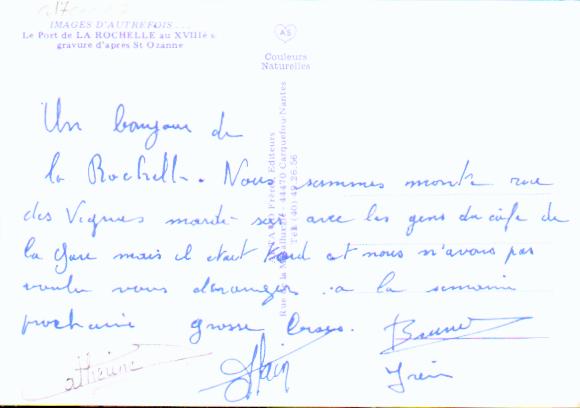 IMAGES D'AUTREFOIS...
Le Port de LA ROCHELLE au XVIIIè s
gravure d'après St Ozanne
AS
Couleurs
Naturelles
Un bonjour de
la Rochelle. Nous sommes monté rue
des Vignes mardi soir avec les gens du café de
la Gare mais il était tard et nous n'avons pas
voulu vous déranger. à la semaine
prochaine grosse bises. Bruno
Catherine Alain Irène
Rue de la Métallurgie - 44470 Carquefou-Nantes
Tél. (40) 49.26.56